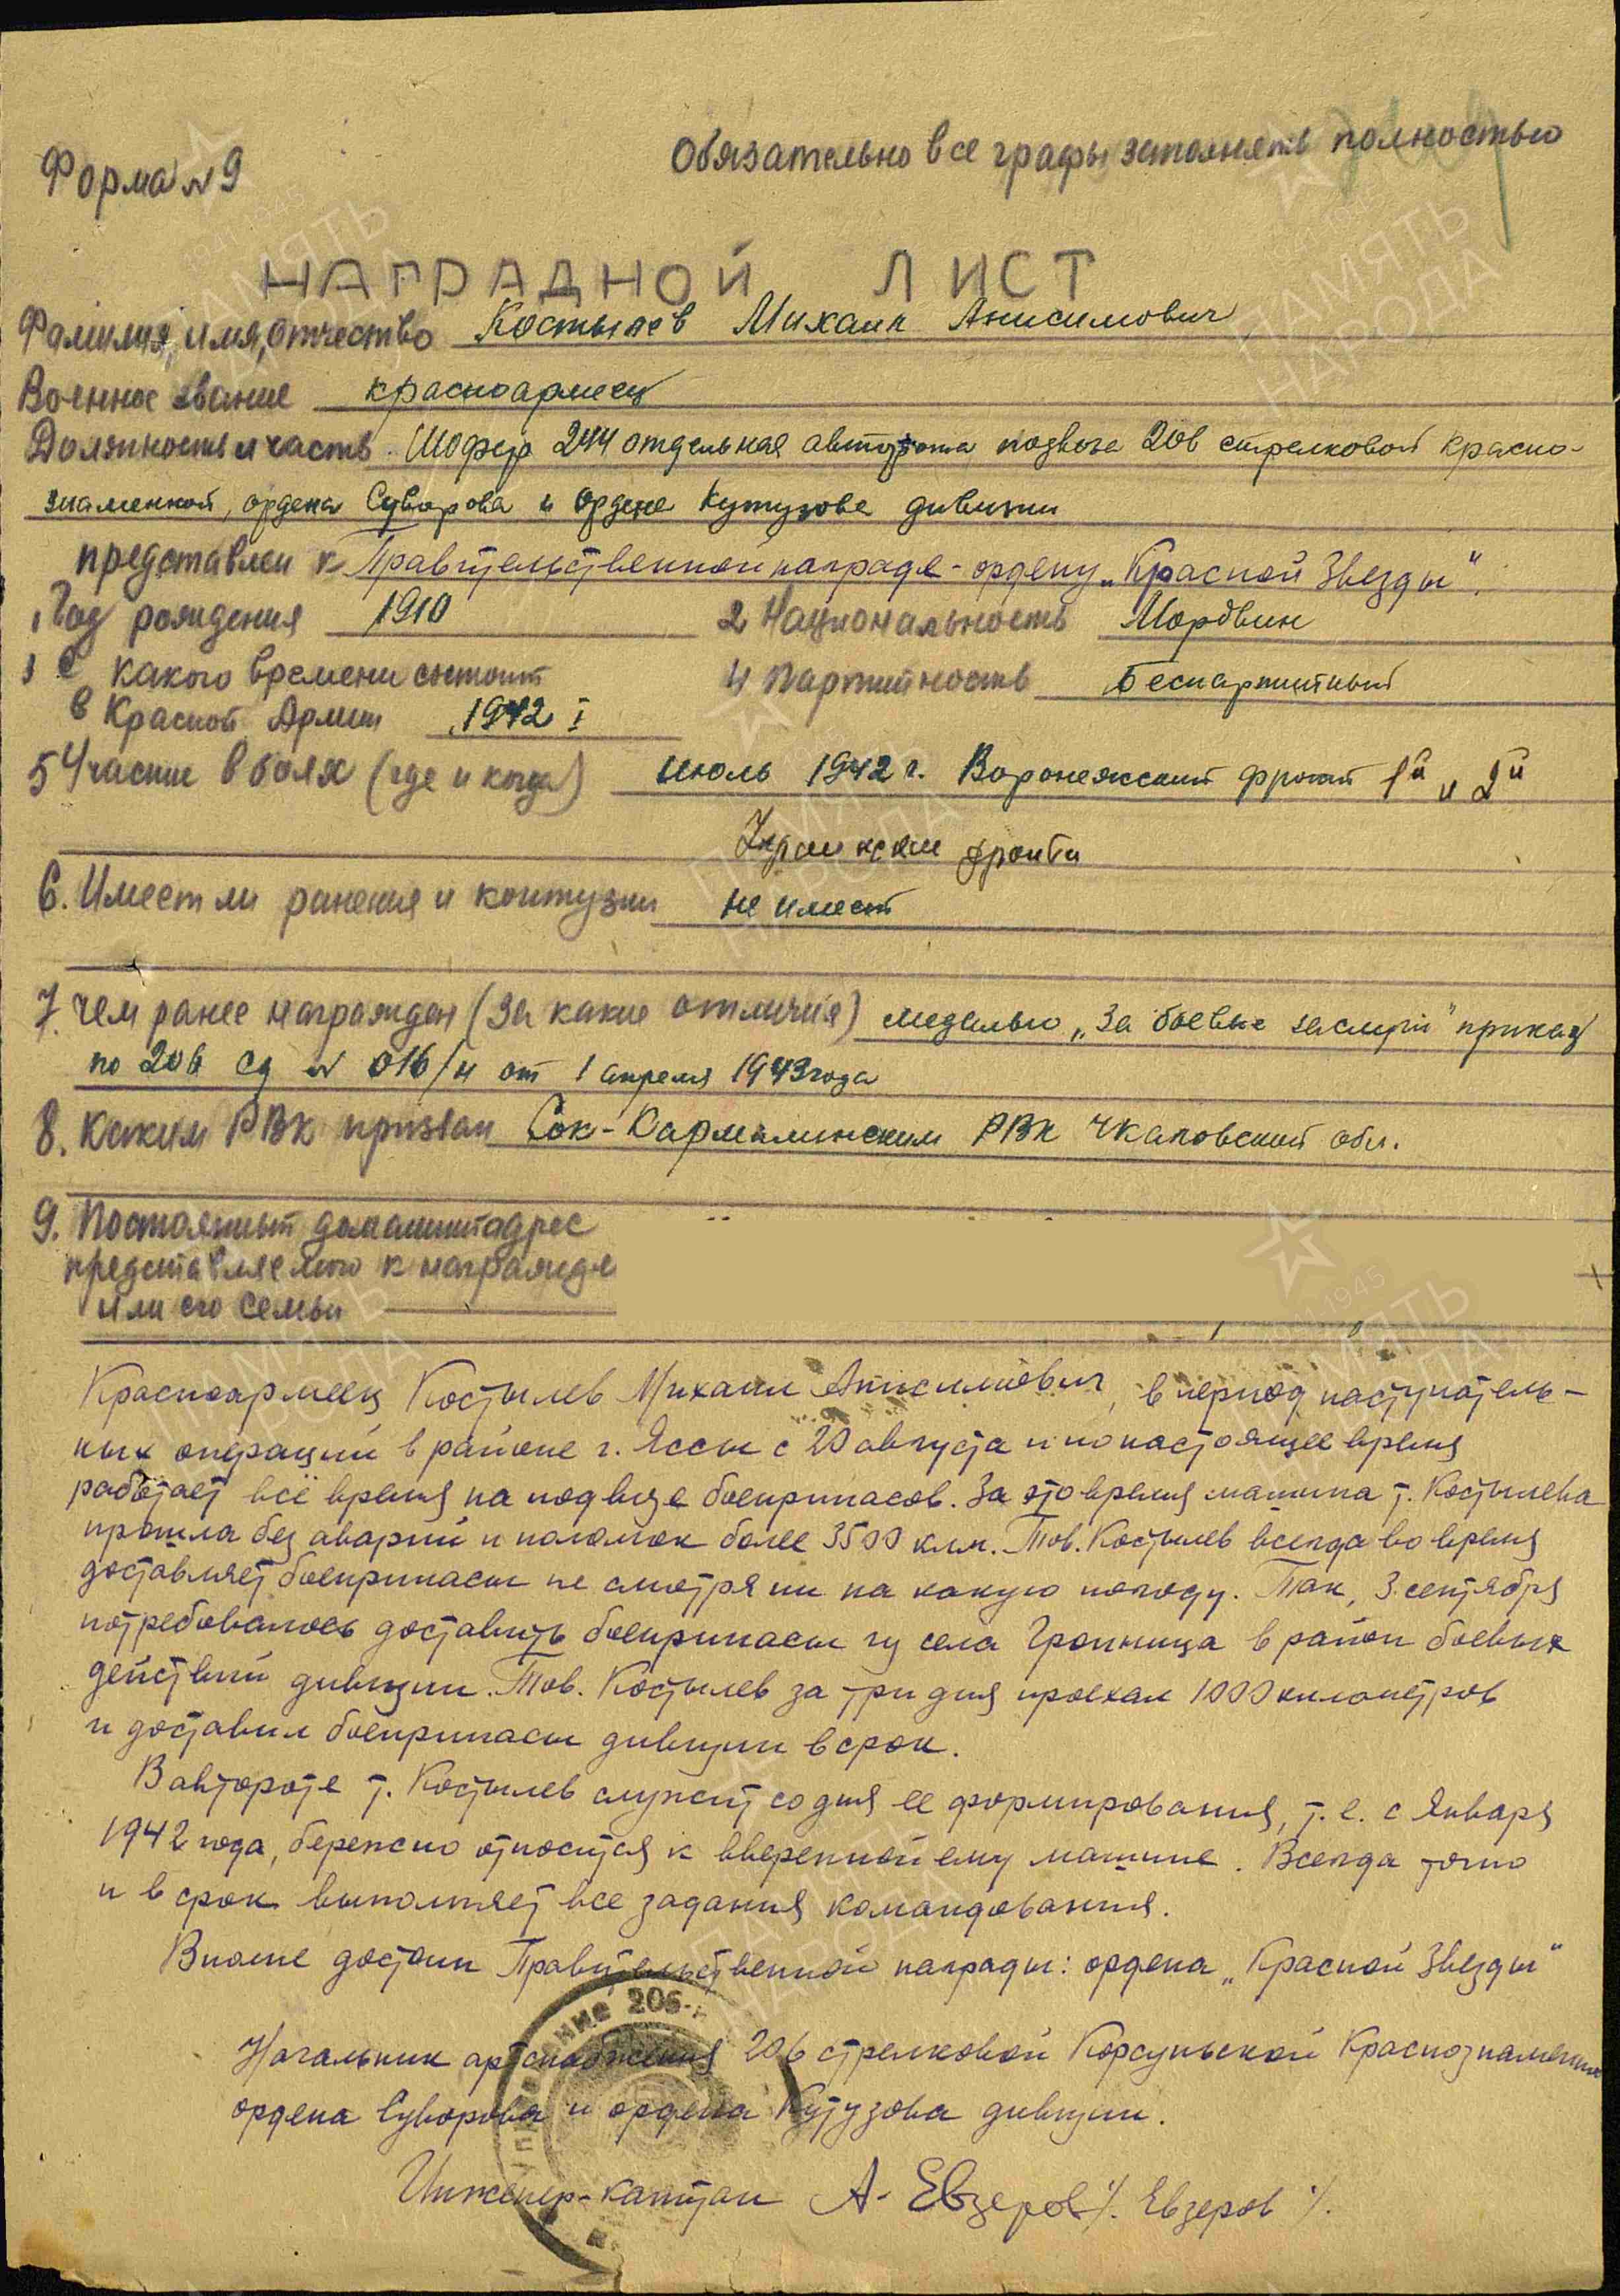 Форма N 9
Обязательно все графы заполнять полностью
НАГРАДНОЙ ЛИСТ
Фамилия, имя, отчество Костылев Михаил Анисимович
Военное звание красноармеец
Должность и часть Шофер 244 отдельная авторота подвоза 206 стрелковой Красно-
знаменной, ордена Суворова и ордена Кутузова дивизии
представлен к Правительственной награде - ордену „Красной Звезды".
1 Год рождения 1910 2 Национальность Мордвин
3 С какого времени состоит 4 Партийность Беспартийный
в Красной Армии 1942 I
5 Участие в боях (где и когда) июль 1942 г. Воронежский фронт 1й и 2й
Украинские фронты
6. Имеет ли ранения и контузии не имеет
7. Чем ранее награжден (за какие отличия) медалью „За боевые заслуги" приказ
по 206 сд N 016/н от 1 апреля 1943 года
8. Каким РВК призван Сок-Кармалинским РВК Чкаловской обл.
9. Постоянный домашний адрес
представляемого к награде
или его семьи
Красноармеец Костылев Михаил Анисимович, в период наступатель-
ных операций в районе г. Яссы с 20 августа и по настоящее время
работает всё время на подвозе боеприпасов. За это время машина т. Костылева
прошла без аварий и поломок более 3500 клм. Тов. Костылев всегда во время
доставляет боеприпасы не смотря ни на какую погоду. Так, 3 сентября
потребовалось доставить боеприпасы из села в район боевых
действий дивизии. Тов. Костылев за три дня проехал 1000 километров
и доставил боеприпасы дивизии в срок.
В автороте т. Костылев служит со дня ее формирования, т.е. с Января
1942 года, бережно относится к вверенной ему машине. Всегда точно
и в срок выполняет все задания командования.
Вполне достоин Правительственной награды: ордена „Красной Звезды"
Начальник артснабжения 206 стрелковой Корсуньской Краснознаменной
ордена Суворова и ордена Кутузова дивизии.
Инженер-капитан А. Евзеров /. Евзеров /.
206
ПАМЯТЬ
НАРОДА
1941-1945